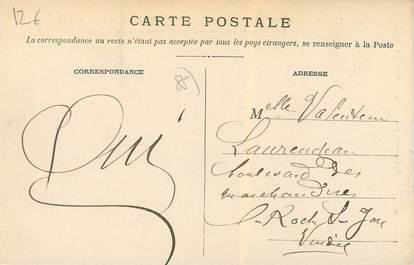 12€
CARTE POSTALE
La correspondance au recto n'étant pas acceptée par tous les pays étrangers, se renseigner à la Poste
CORRESPONDANCE
(85)
ADRESSE
Oui
Melle Valentine
Laurendeau
boulevard des
marchandises
La Roche S/ Yon
Vendée